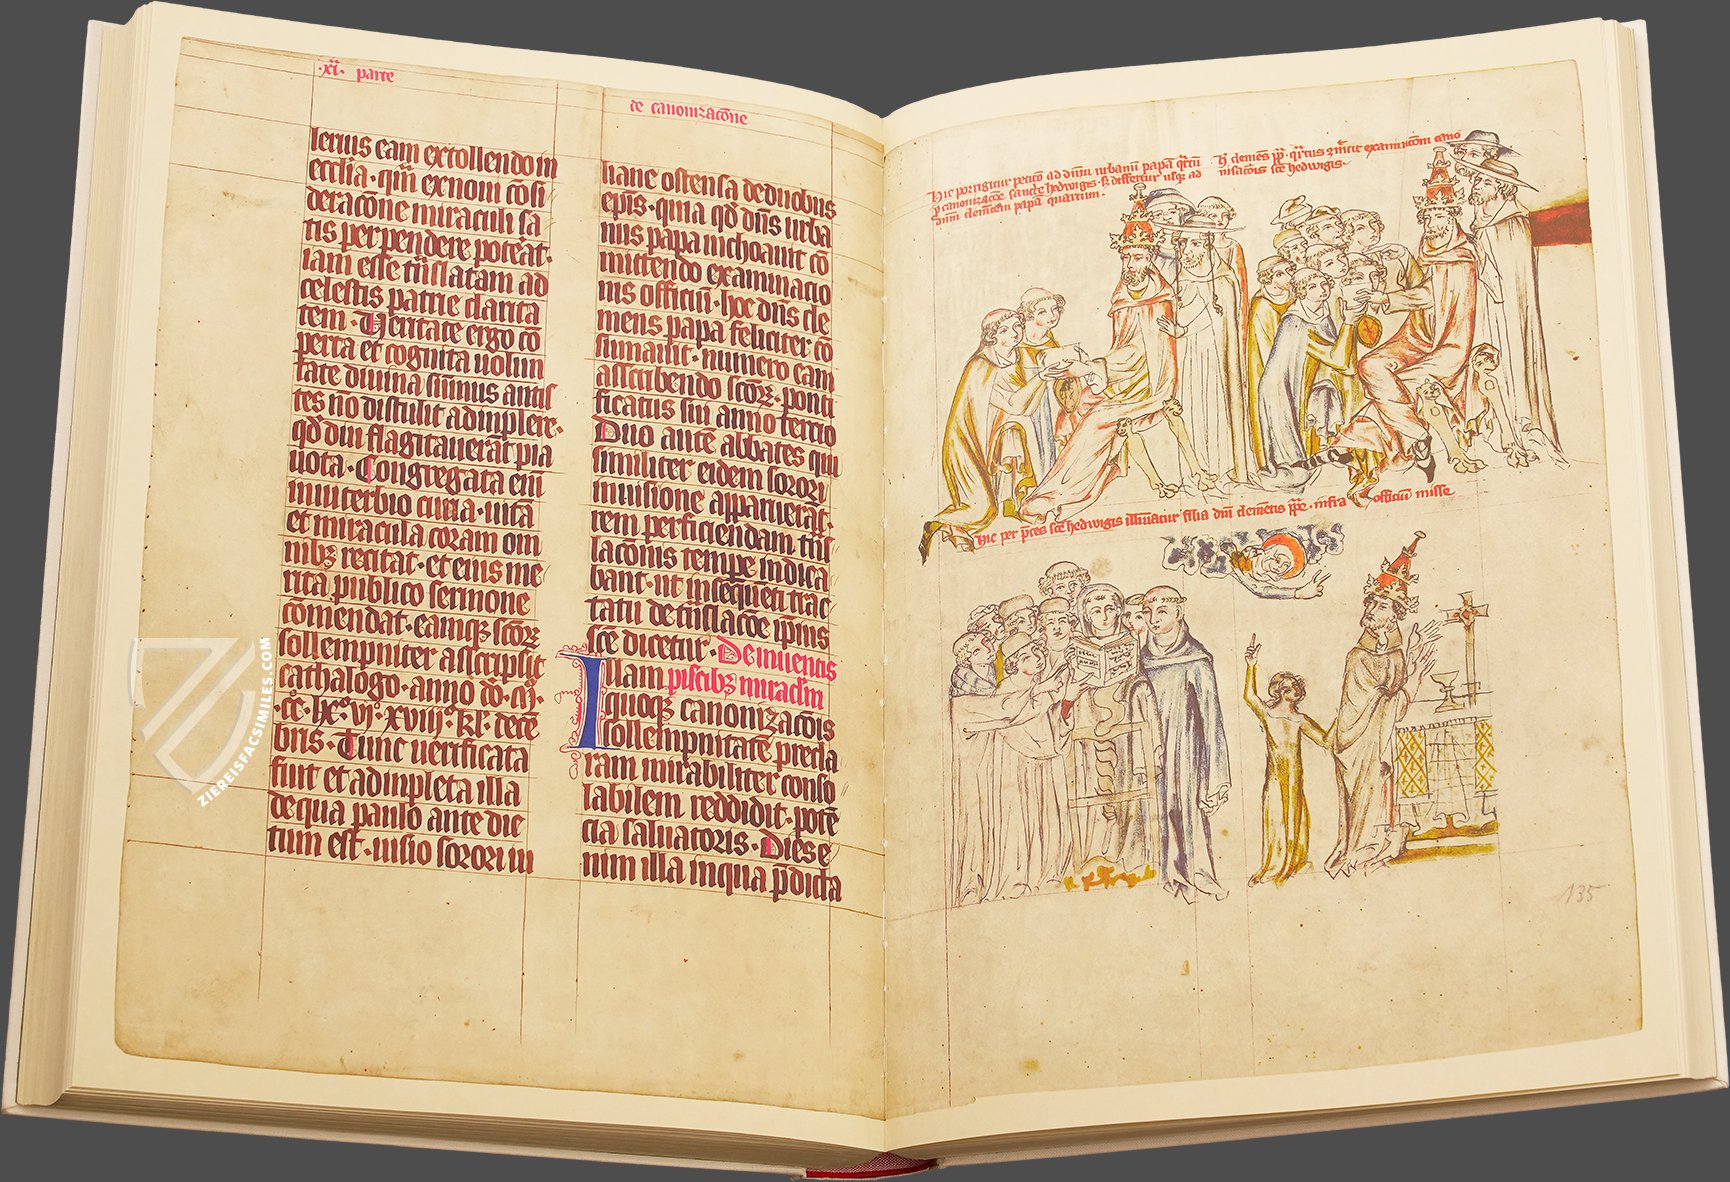 ·xi· parte
de canonizacōne
lerius eam extollendo in
eccl̄ia · qm̄ ex noui cōsi
deracōne miraculi sa
tis perpendere poterat ·
iam esse trāslatam ad
celestis patrie clarita
tem · Veritate ergo cō
perta et cognita uolun
tate diuina sūmus antis
tes nō distulit adimplere ·
qd̄ diu flagitauerāt pia
uota · Congregata eni
in uiterbio curia · uitā
et miracula coram om
nibꝫ recitat · et eius me
rita publico sermone
cōmendat · eamqꝫ scōꝝ
sollempniter asscripsit
cathalogo · anno dō · m̊ ·
· cc · lx̊ · vi̊ · xviij · kl · decē
bris · Tunc uerificata
fuit et adimpleta illa
de qua paulo ante dic
tum est · uisio sorori iu
liane ostensa de duobus
ep̄is · quia qd̄ dn̄s urba
nus papa inchoauit cō
mittendo examinacio
nis officiū · hoc dn̄s cle
mens papa feliciter cō
sūmauit · numero eam
asscribendo scōꝝ · ponti
ficatus sui anno tercio
Duo autē abbates qui
similiter eidem sorori
in uisione apparuerāt ·
rem perficiendam trās
lacōnis tempe indica
bant · ut in sequēti trac
tatu de trāslacōe ip̄ius
scē dicetur · De inuentis
Illam piscibꝫ miracl̄m
quoqꝫ canonizacōis
sollempnitatē precla
ram mirabiliter conso
labilem reddidit · potē
cia saluatoris · Dies e
nim illa in qua p̄dicta
Hic porrigitur peticō ad dn̄m urbanū papā qrtū
p̱ canonizacōe sancte hedwigis · sꝫ differtur usqꝫ ad
dn̄m clemētem papā quartum ·
Hic clemēs pp̄ · qrtus cōmittit examinacōem cano
nisacōis scē hedwigis ·
Hic per p̄ces scē hedwigis illūinatur filia dn̄i clemētis pp̄e · infra officiū misse
135
ZIEREISFACSIMILES.COM